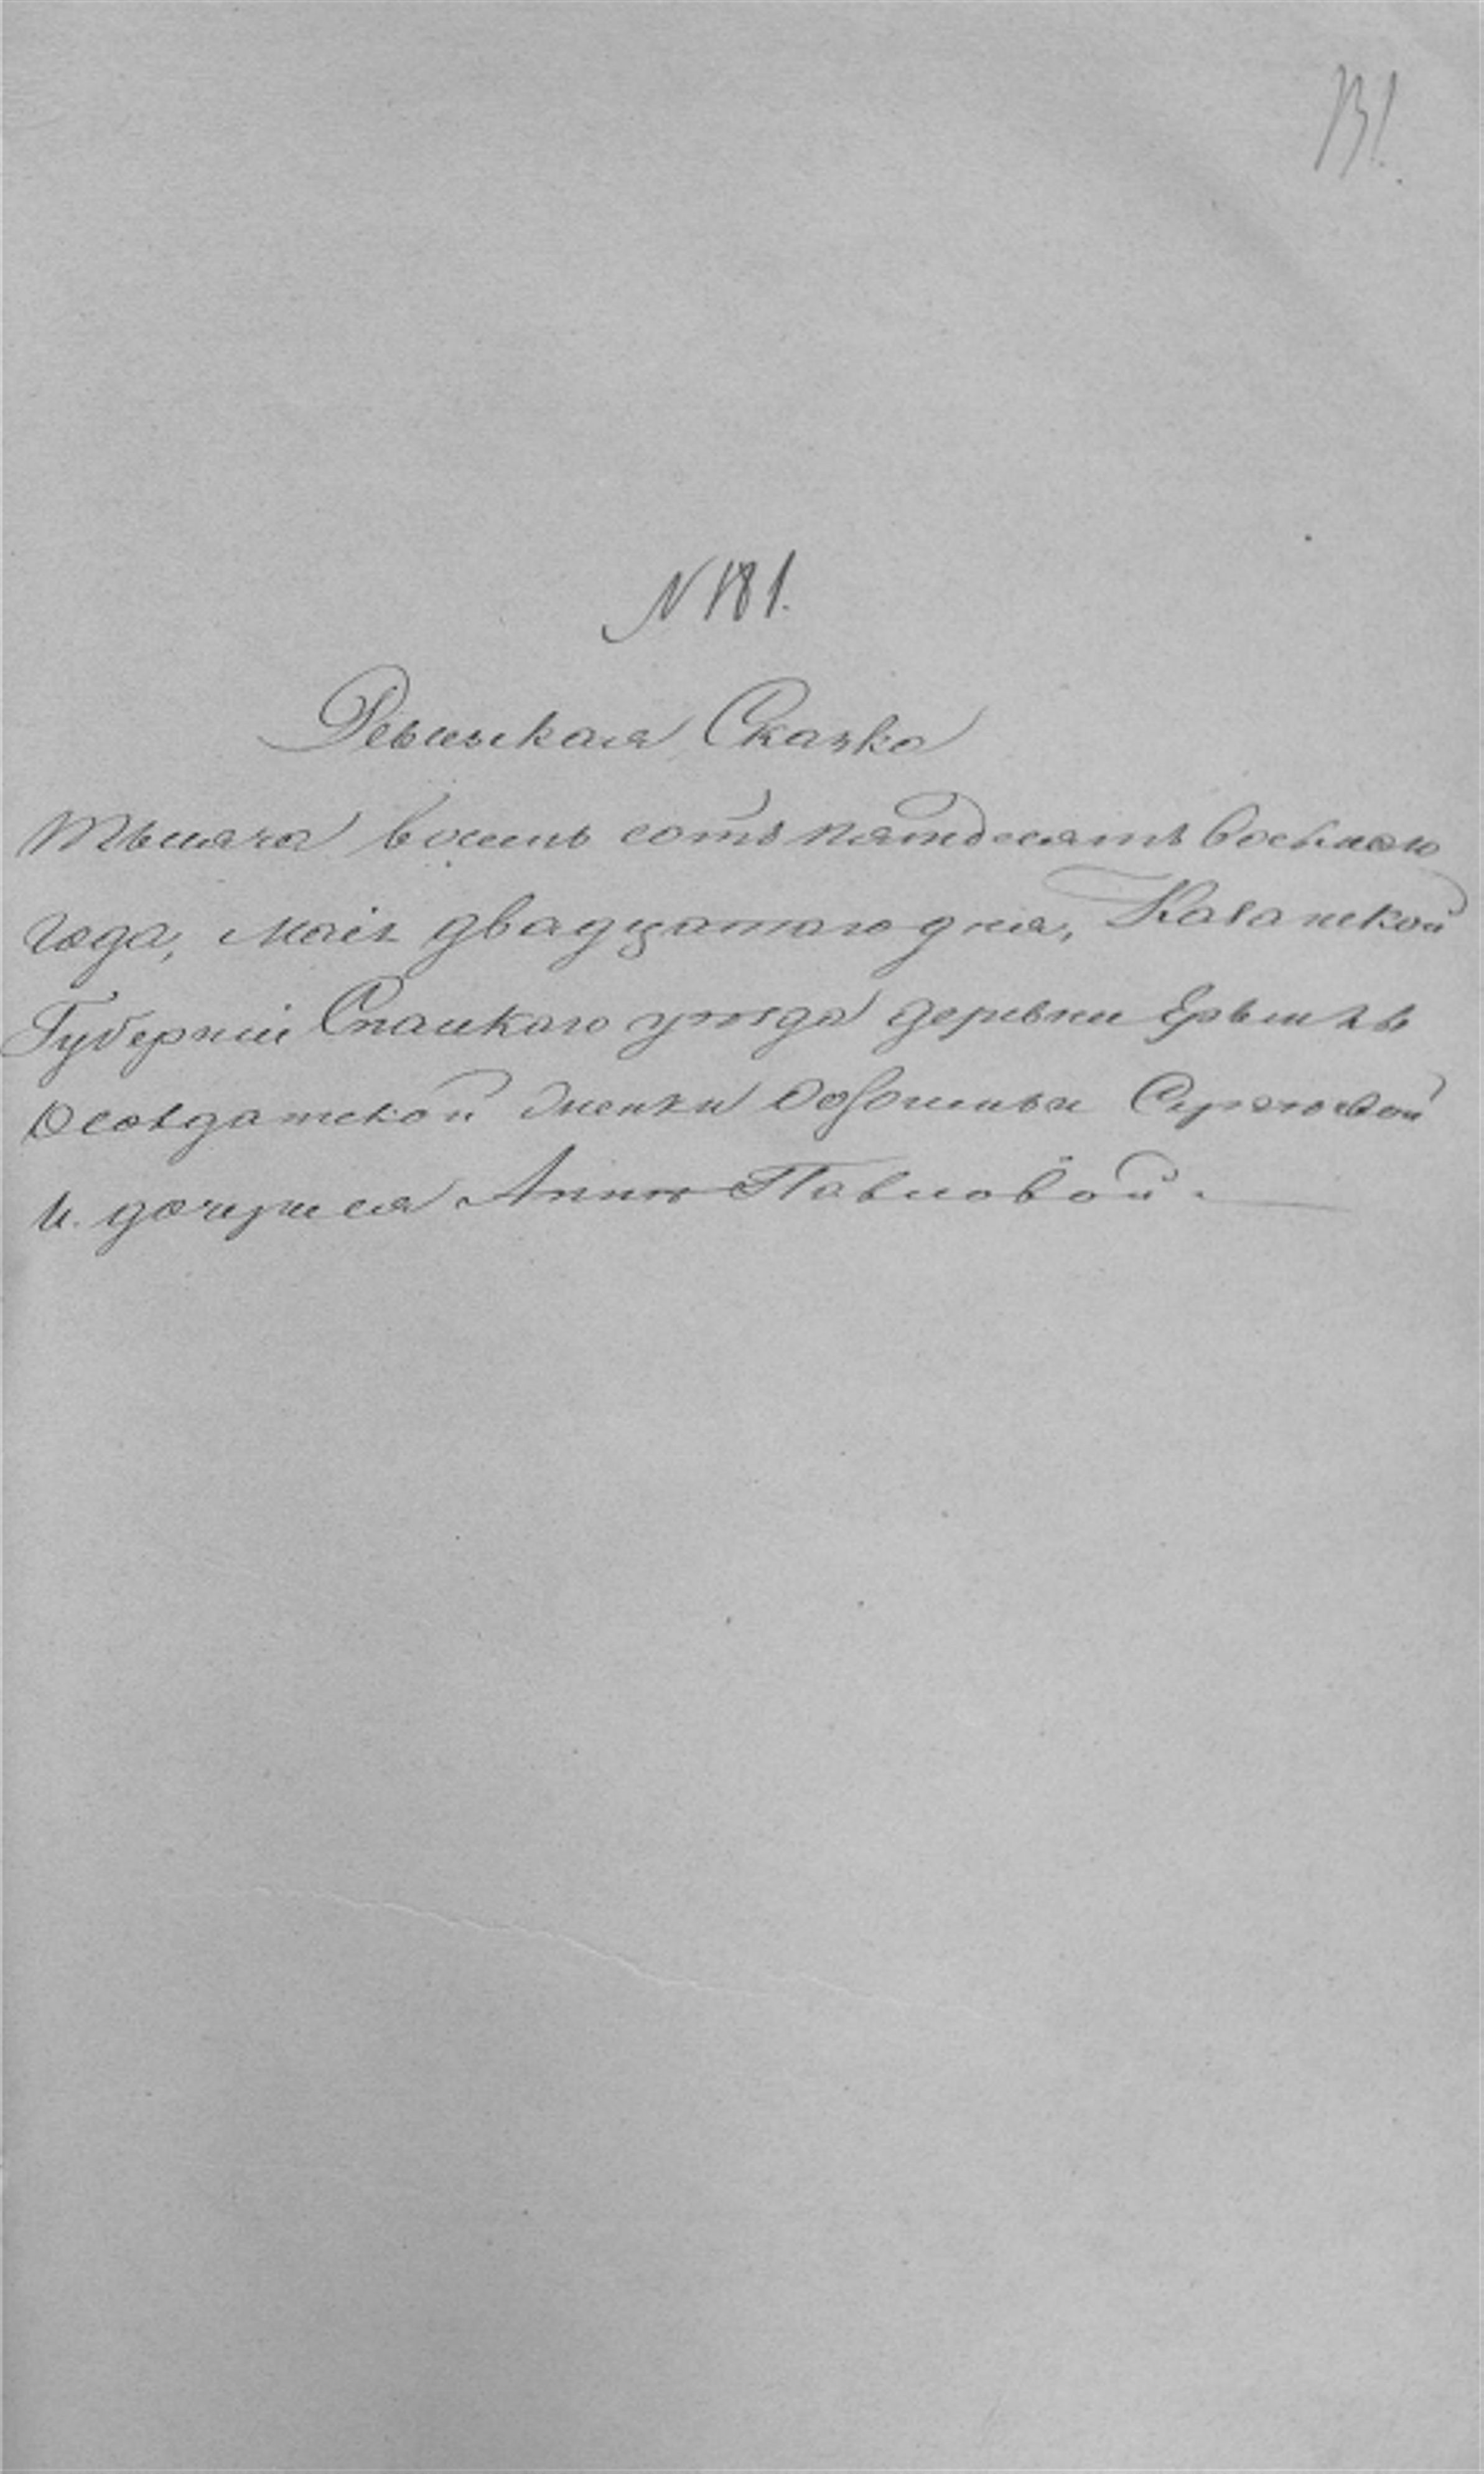 131.
N 181.
Ревизская Сказка
тысяча восемь сотъ пятдесятъ восьмаго
года, маія двадцатаго дня, Казанской
Губерніи Спаскаго уѣзда деревни
О солдатской женки Сергѣевой
и дочери ея Анны Павловой.